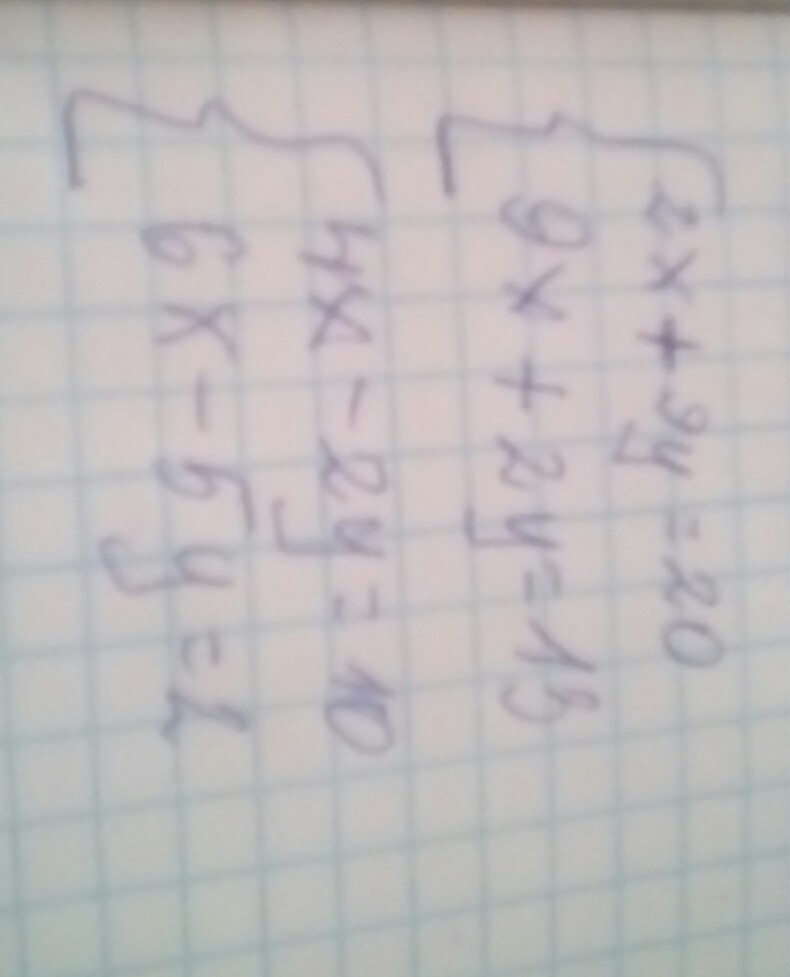 2x + 9y = 20
9x + 2y = 13
4x - 2y = 10
6x - 5y = 2